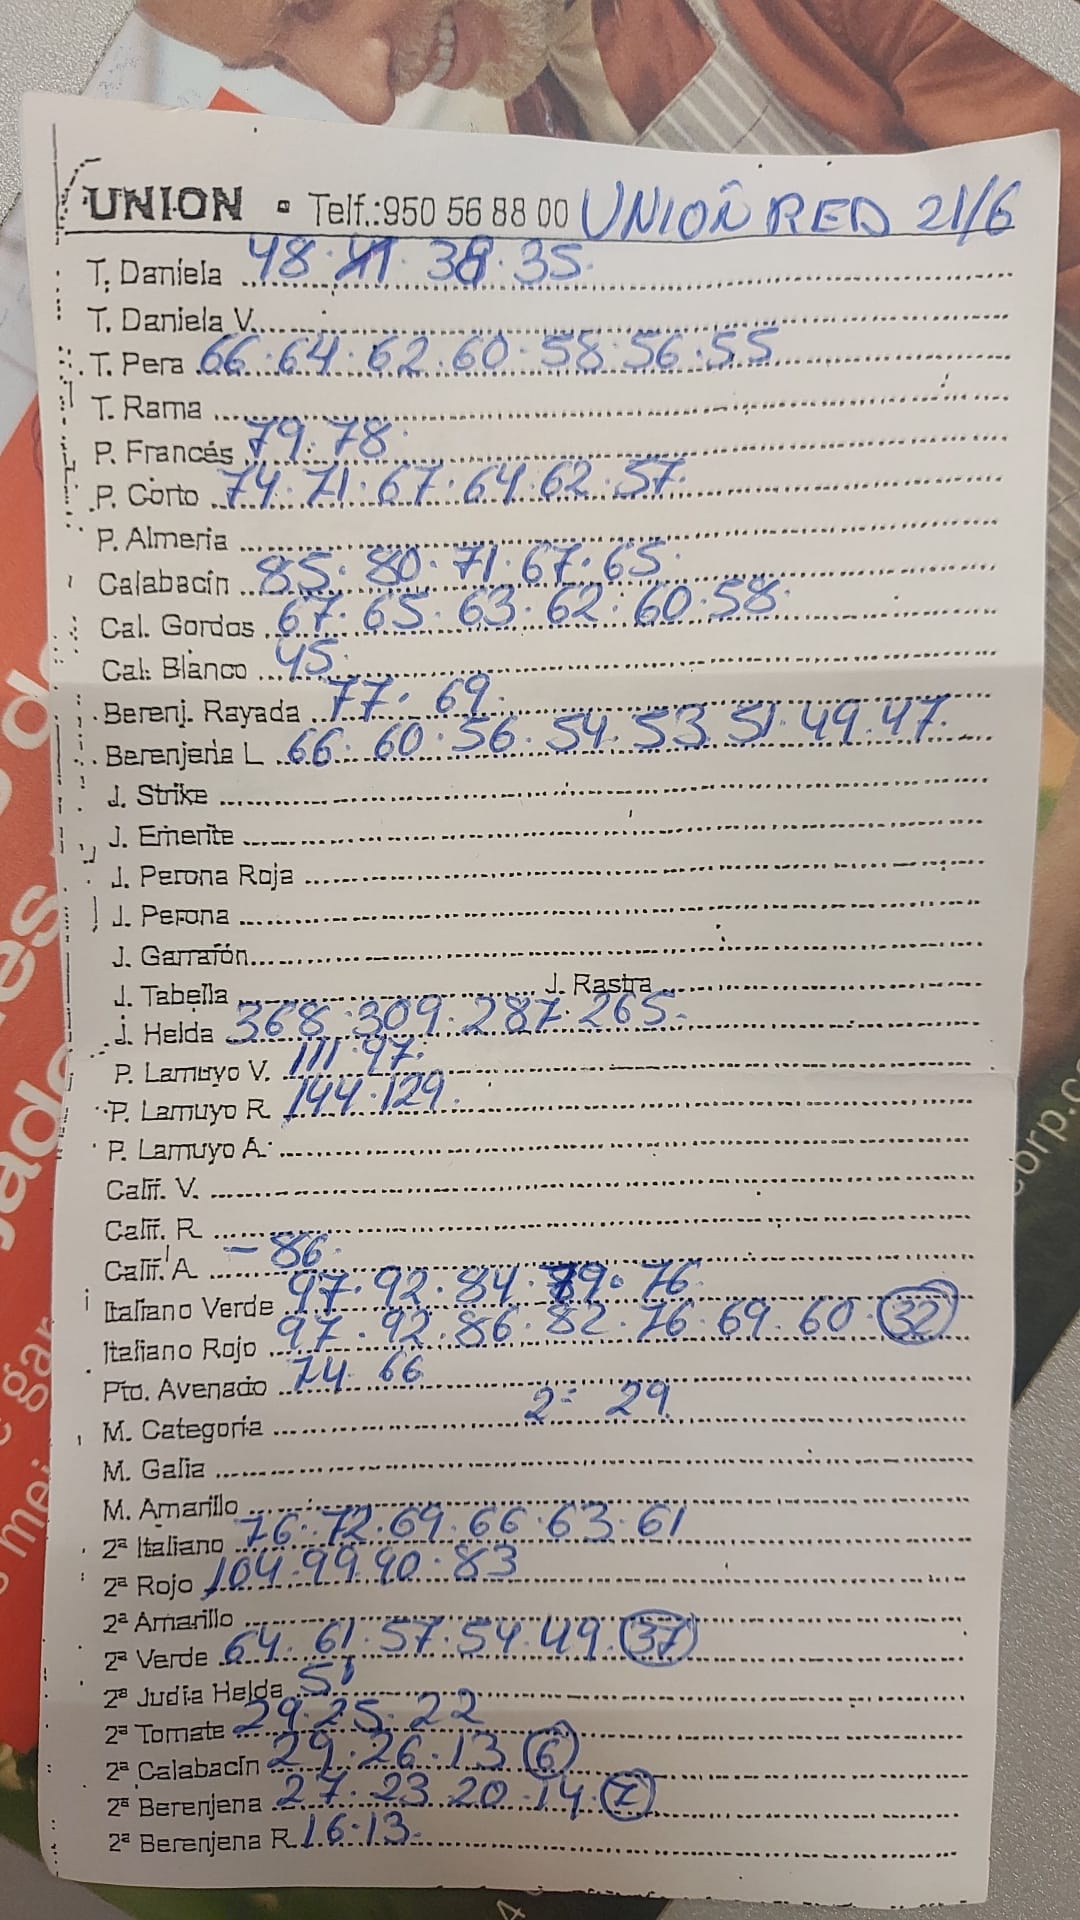 UNION · Telf.:950 56 88 00 UNION RED 21/6
T. Daniela 48. 41. 38. 35.
T. Daniela V.
T. Pera 66. 64. 62. 60. 58. 56. 55
T. Rama
P. Francés 79. 78.
P. Corto 74. 71. 67. 64. 62. 57.
P. Almeria
Calabacín 85. 80. 71. 67. 65.
Cal. Gordos 67. 65. 63. 62. 60. 58.
Cal. Blanco 45.
Berenj. Rayada 77. 69.
Berenjena L 66. 60. 56. 54. 53. 51. 49. 47.
J. Strike
J. Emerite
J. Perona Roja
J. Perona
J. Garrafón
J. Tabella J. Rastra
J. Helda 368. 309. 287. 265.
P. Lamuyo V. 111. 97.
P. Lamuyo R. 144. 129.
P. Lamuyo A.
Calif. V.
Calif. R.
Calif. A - 86.
Italiano Verde 97. 92. 84. 79. 76.
Italiano Rojo 97. 92. 86. 82. 76. 69. 60. 32
Pto. Avenado 74. 66
M. Categoría 2ª 29.
M. Galia
M. Amarillo
2ª Italiano 76. 72. 69. 66. 63. 61
2ª Rojo 104. 99. 90. 83
2ª Amarillo
2ª Verde 64. 61. 57. 54. 49. 37
2ª Judía Helda 51
2ª Tomate 29. 25. 22
2ª Calabacín 29. 26. 13 6
2ª Berenjena 27. 23 20. 14. 7
2ª Berenjena R. 16. 13.
corp.c